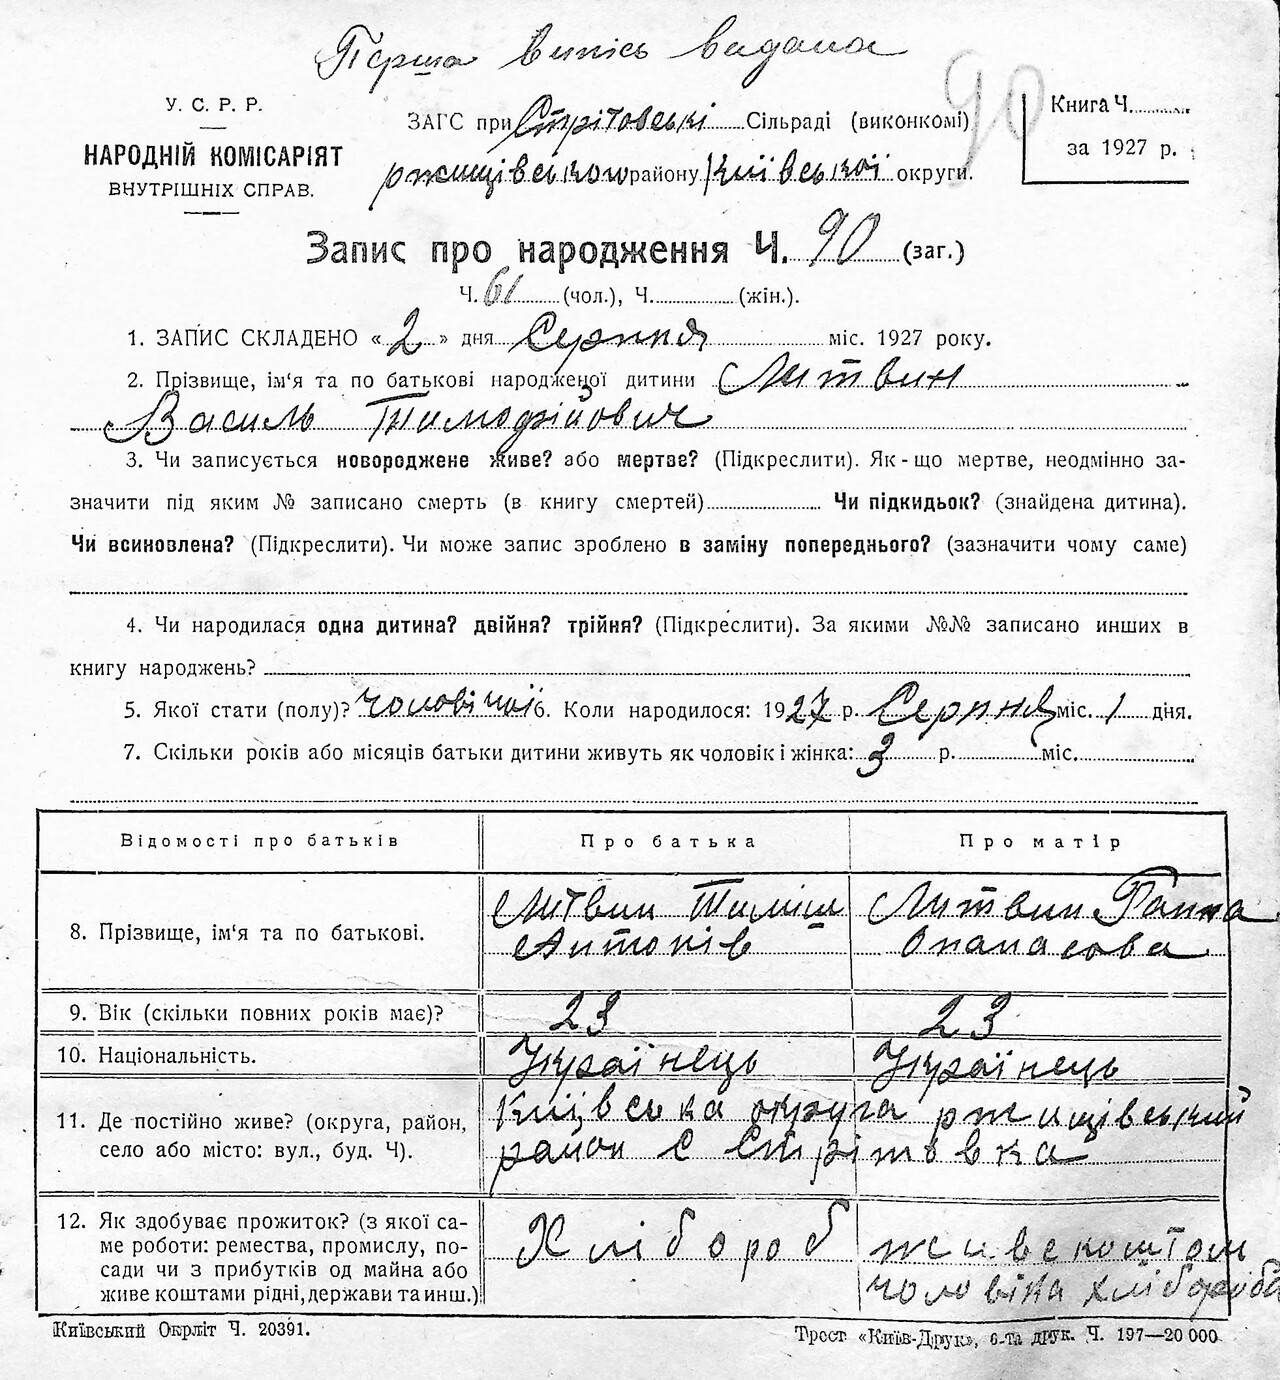 Перша випись видана
90
У. С. Р. Р.
НАРОДНІЙ КОМІСАРІЯТ
ВНУТРІШНІХ СПРАВ.
ЗАГС при Стрітовські Сільраді (виконкомі)
ржищівського району Київської округи.
Книга Ч.
за 1927 р.
Запис про народження Ч. 90 (заг.)
Ч. 61 (чол.), Ч. (жін.).
1. ЗАПИС СКЛАДЕНО « 2 » дня Серпня міс. 1927 року.
2. Прізвище, ім'я та по батькові народженої дитини Литвин
Василь Тимофійович
3. Чи записується новороджене живе? або мертве? (Підкреслити). Як-що мертве, неодмінно за-
значити під яким № записано смерть (в книгу смертей) Чи підкидьок? (знайдена дитина).
Чи всиновлена? (Підкреслити). Чи може запис зроблено в заміну попереднього? (зазначити чому саме)
4. Чи народилася одна дитина? двійня? трійня? (Підкреслити). За якими №№ записано инших в
книгу народжень?
5. Якої стати (полу)? чоловічої 6. Коли народилося: 1927 р. Серпня міс. 1 дня.
7. Скільки років або місяців батьки дитини живуть як чоловік і жінка: 3 р. міс.
Відомості про батьків Про батька Про матір
8. Прізвище, ім'я та по батькові. Литвин Тиміш Антонів Литвин Ганна Опанасова
9. Вік (скільки повних років має)? 23 23
10. Національність. Українець Українець
11. Де постійно живе? (округа, район, Київська округа ржищівський
село або місто: вул., буд. Ч). район с Стрітовка
12. Як здобуває прожиток? (з якої са-
ме роботи: ремества, промислу, по- Хлібороб живе коштом
сади чи з прибутків од майна або чоловіка хлібороба
живе коштами рідні, держави та инш.)
Київський Окрліт Ч. 20391.
Трест «Київ-Друк», 6-та друк. Ч. 197—20 000